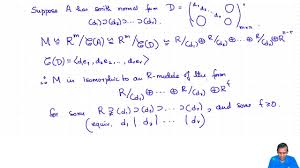 Suppose A has smith normal form D = ( d₁ d₂ ⋱ 0 0 0 )
(d₁)⊃(d₂)⊃...⊃(dᵣ)
M ≅ Rᵐ/ς(A) ≅ Rᵐ/ς(D) ≅ R/(d₁) ⊕ R/(d₂) ⊕ ... ⊕ R/(dᵣ) ⊕ R
ς(D) = ⟨d₁e₁, d₂e₂, ..., dᵣeᵣ⟩
∴ M is isomorphic to an R-module of the form
R/(d₁) ⊕ ... ⊕ R/(dᵣ) ⊕ Rᶠ
for some R ⊋ (d₁) ⊃ (d₂) ⊃ ... ⊃ (dᵣ), and some f≥0.
(equiv. d₁ | d₂ | ... | dᵣ)